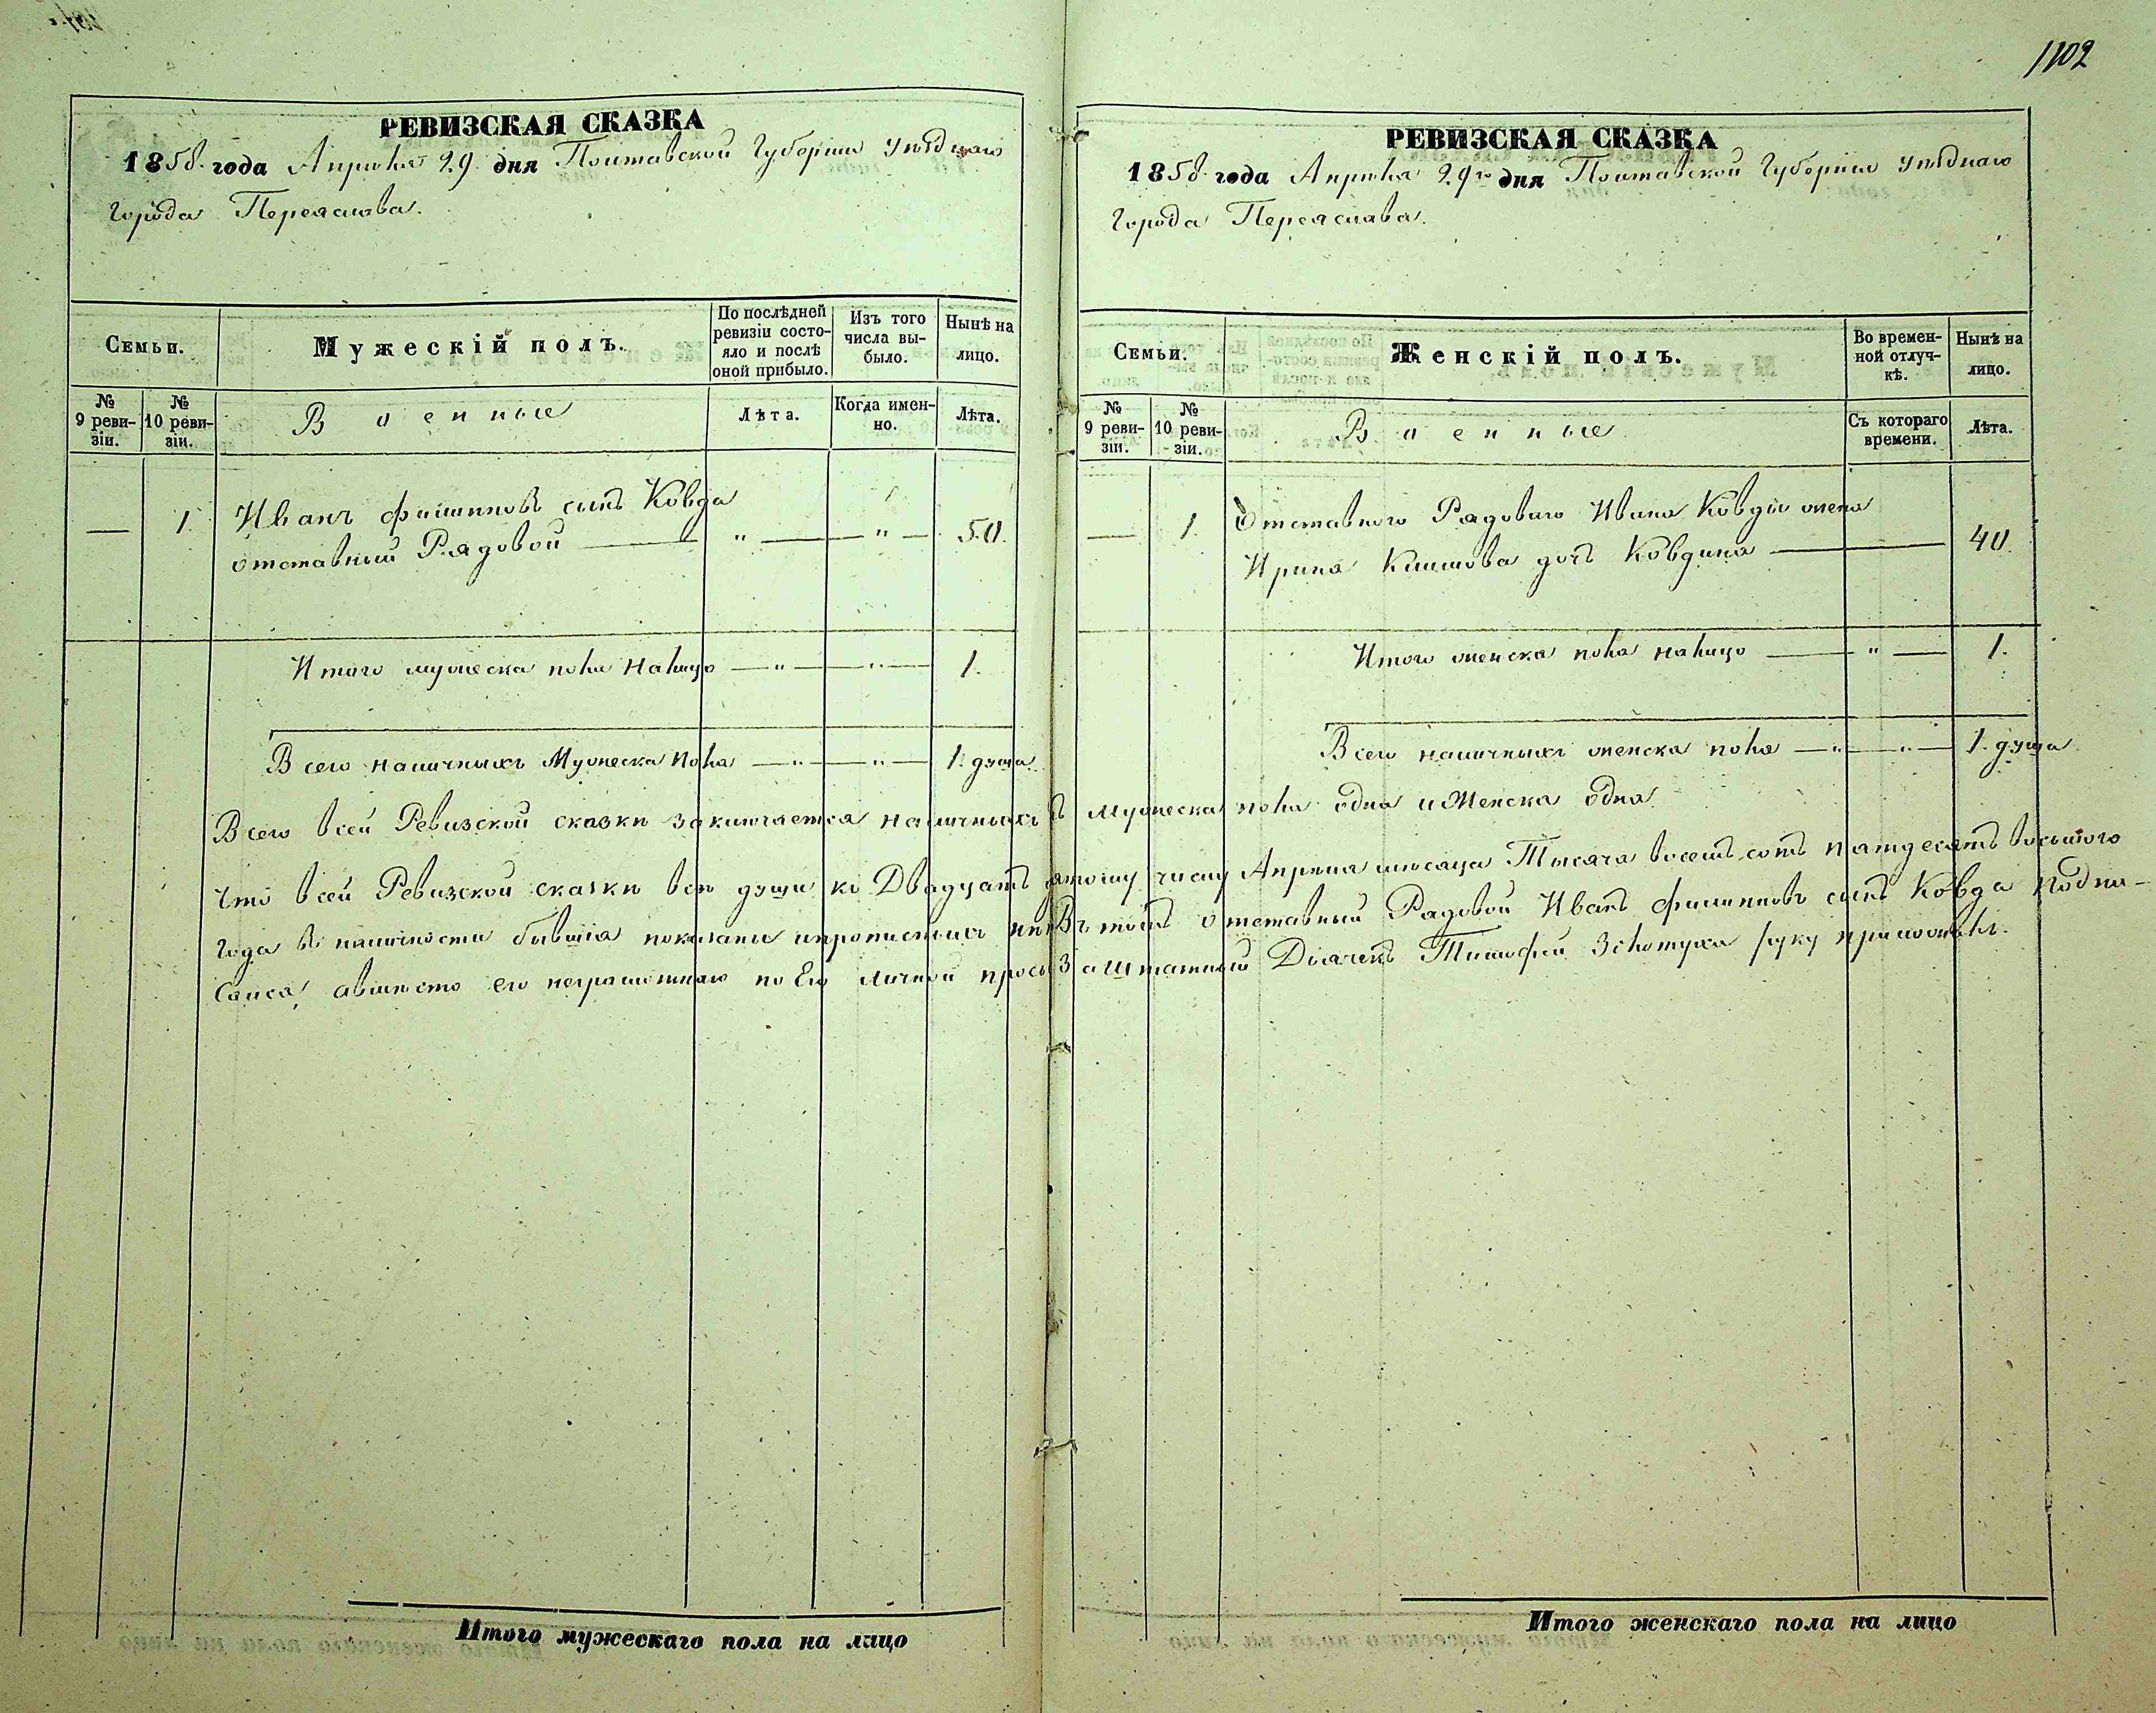 1102
РЕВИЗСКАЯ СКАЗКА
1858. года Апрѣля 29. дня Полтавской Губерніи Уѣзднаго
Города Переяслава.
Семьи.
Мужескій полъ.
По послѣдней ревизіи состо-
яло и послѣ
оной прибыло.
Изъ того
числа вы-
было.
Нынѣ на
лицо.
№
9 реви-
зіи.
№
10 реви-
зіи.
Военные
Лѣта.
Когда имен-
но.
Лѣта.
— 1. Иванъ Филиповъ сынъ Ковда
отставный Рядовой — " — " — 50.
Итого мужеска пола налицо — " — " — 1.
Всего наличныхъ Мужеска пола — " — " — 1. душа.
РЕВИЗСКАЯ СКАЗКА
1858. года Апрѣля 29го дня Полтавской Губерніи Уѣзднаго
Города Переяслава.
Семьи.
Женскій полъ.
Во времен-
ной отлуч-
кѣ.
Нынѣ на
лицо.
№
9 реви-
зіи.
№
10 реви-
зіи.
Военные
Съ котораго
времени.
Лѣта.
— 1. Отставного Рядоваго Ивана Ковды жена
Ирина Климова дочь Ковдина — 40.
Итого женска пола налицо — " — 1.
Всего наличныхъ женска пола — " — " — 1. душа
Всего всей Ревизской сказки заключается наличныхъ мужеска пола одна и Женска одна.
Что всей Ревизской сказки всѣ души ко Двадцать пятому числу Апрѣля мѣсяца Тысяча восемь сотъ пятдесятъ восьмого
года въ наличности бывшіа показаны и прописныхъ нѣтъ въ томъ отставный Рядовой Иванъ Филиповъ сынъ Ковда подпи-
сался, авмѣсто его неграмотнаго по Его личной прозбѣ Заштатный Дьячекъ Тимофей руку приложилъ.
Итого мужескаго пола на лицо
Итого женскаго пола на лицо